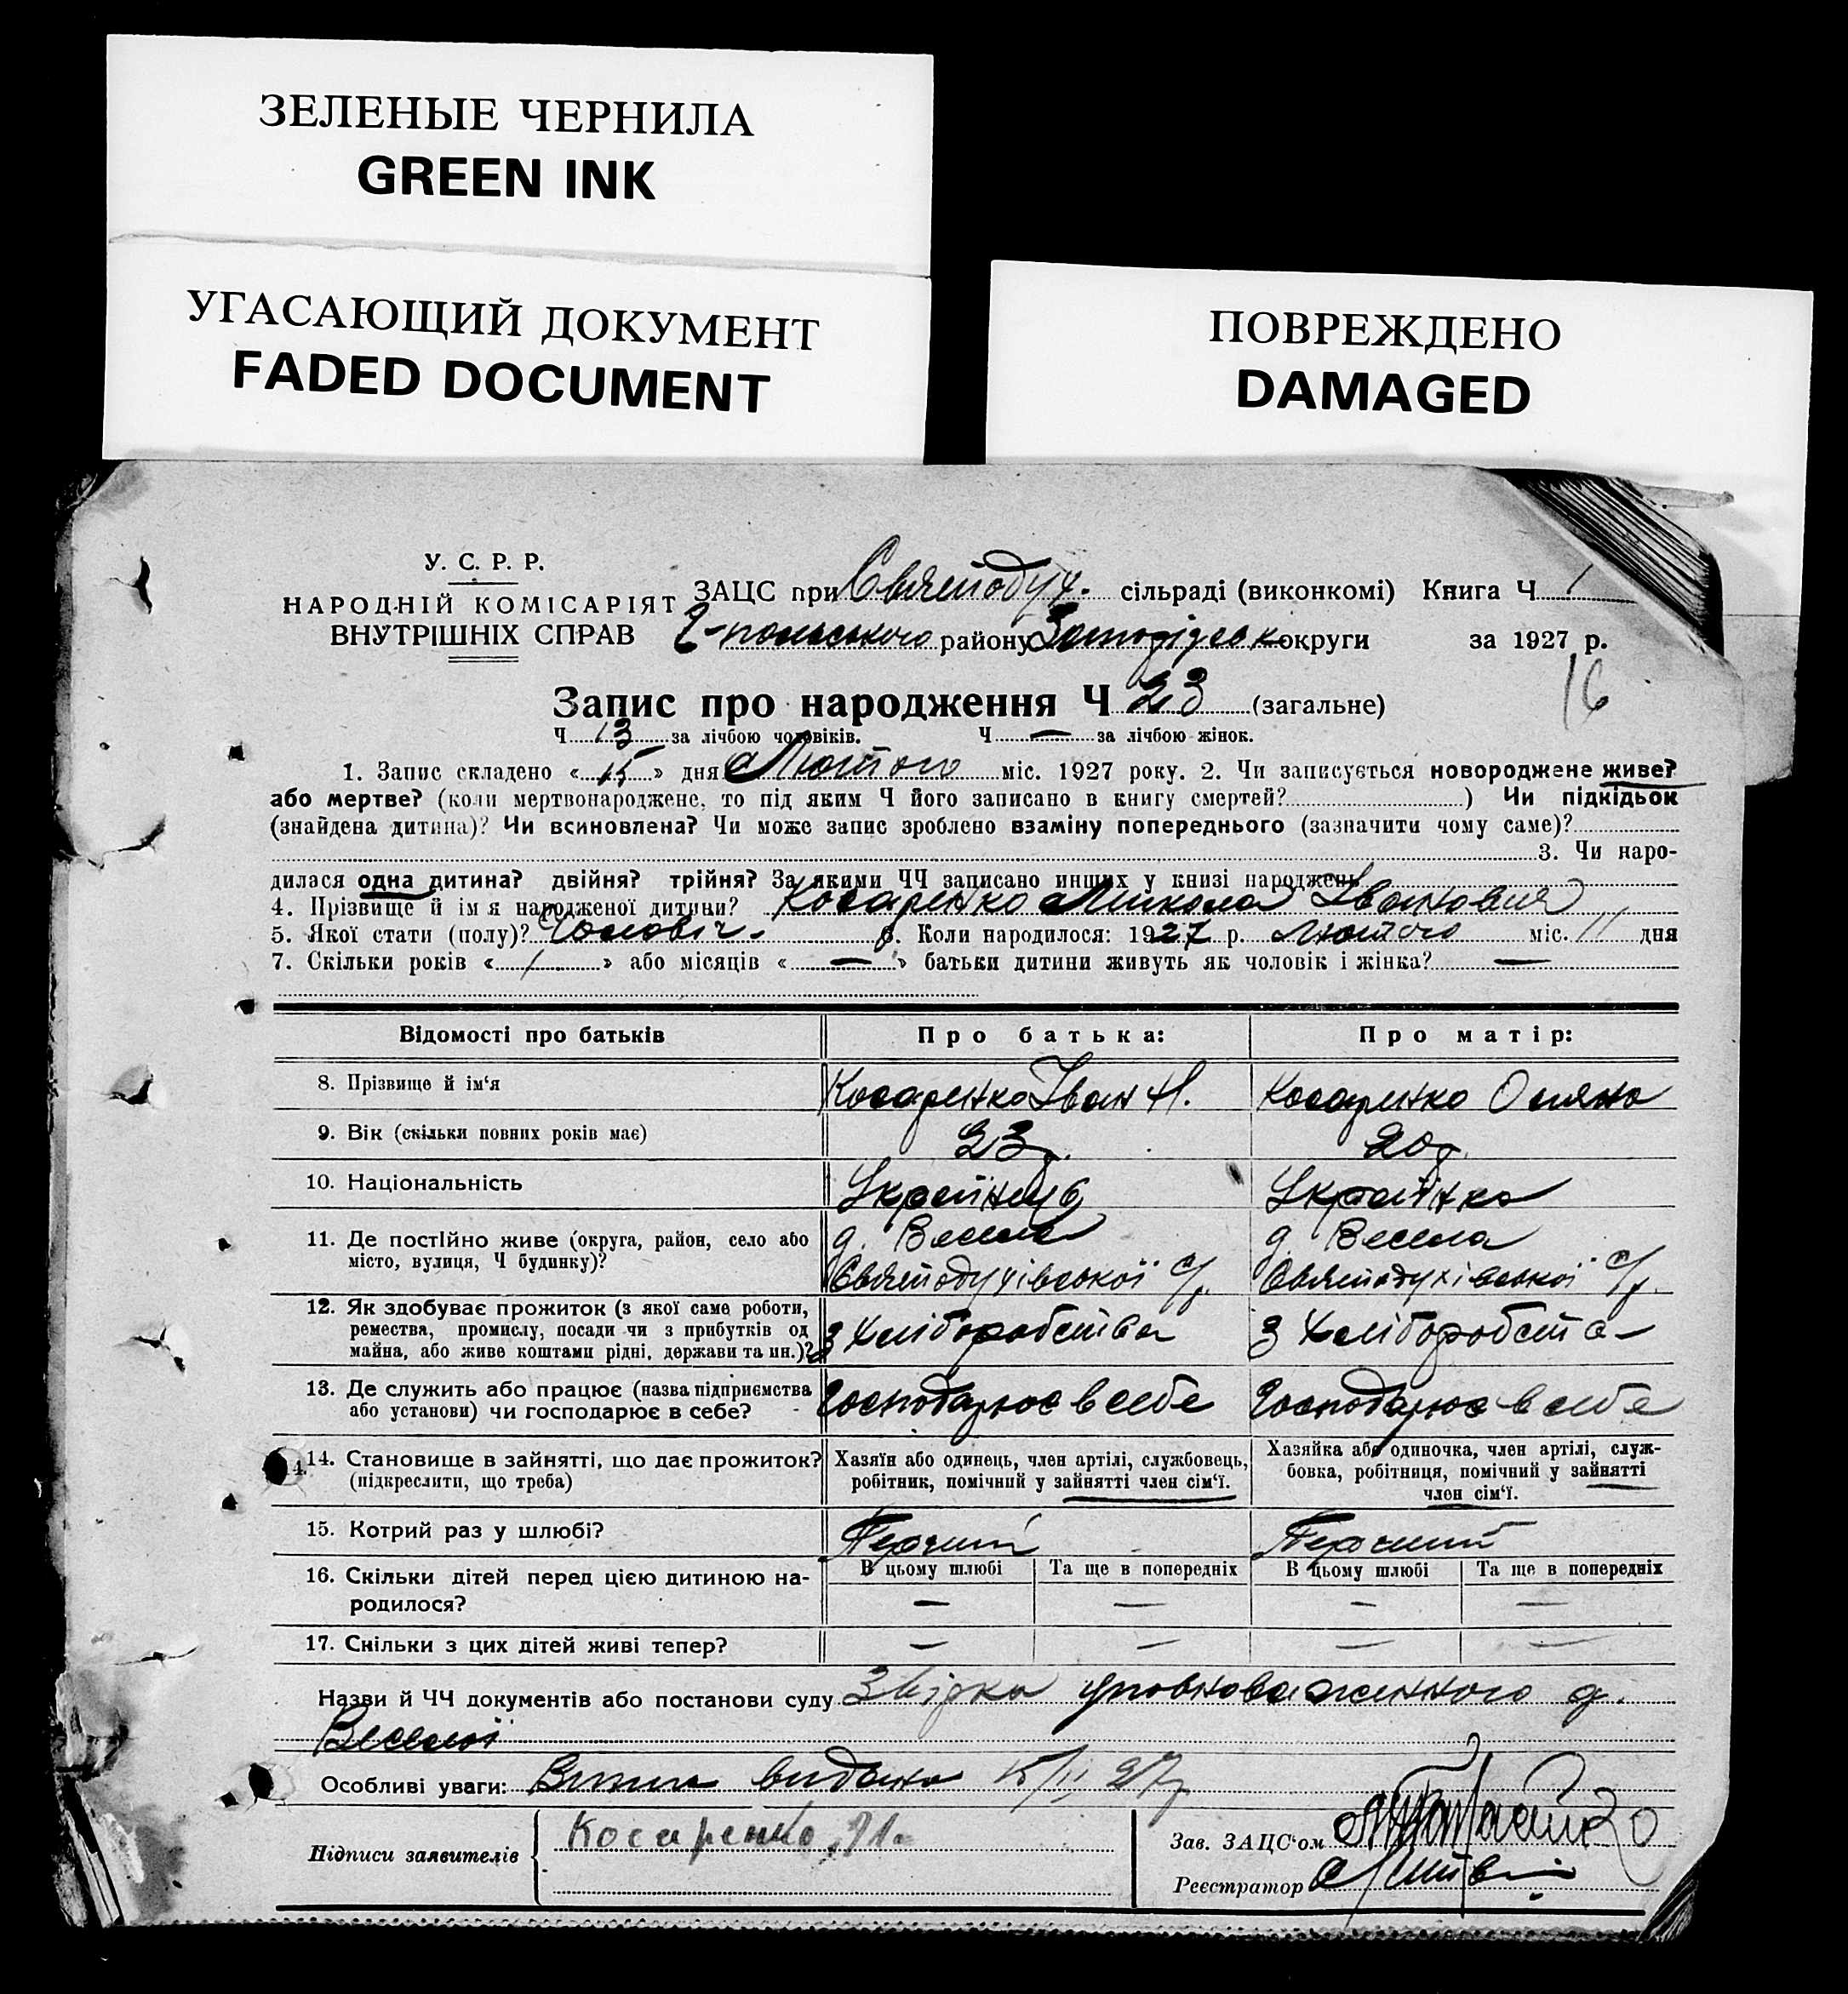 ЗЕЛЕНЫЕ ЧЕРНИЛА
GREEN INK
УГАСАЮЩИЙ ДОКУМЕНТ
FADED DOCUMENT
ПОВРЕЖДЕНО
DAMAGED
У. С. Р. Р.
НАРОДНІЙ КОМІСАРІЯТ
ВНУТРІШНІХ СПРАВ
ЗАЦС при Святодух. сільраді (виконкомі) Книга Ч 1
району округи за 1927 р.
16
Запис про народження Ч 23 (загальне)
Ч 13 за лічбою чоловіків. Ч — за лічбою жінок.
1. Запис складено « 15 » дня Лютого міс. 1927 року. 2. Чи записується новороджене живе?
або мертве? (коли мертвонароджене, то під яким Ч його записано в книгу смертей? ) Чи підкідьок
(знайдена дитина)? Чи всиновлена? Чи може запис зроблено взаміну попереднього (зазначити чому саме)?
3. Чи наро-
дилася одна дитина? двійня? трійня? За якими ЧЧ записано инших у книзі народжень
4. Прізвище й імя народженої дитини? Косаренко Микола Іванович
5. Якої стати (полу)? Чоловіч. 6. Коли народилося: 1927 р. Лютого міс. 11 дня
7. Скільки років « 1 » або місяців « — » батьки дитини живуть як чоловік і жінка? —
Відомості про батьків Про батька: Про матір:
8. Прізвище й ім'я Косаренко Іван Н. Косаренко Оляна
9. Вік (скільки повних років має) 23 р. 20 р.
10. Національність Українец Українка
11. Де постійно живе (округа, район, село або місто, вулиця, Ч будинку)? д. Весела Святодухівської с/р. д. Весела Святодухівської с/р.
12. Як здобуває прожиток (з якої саме роботи, ремества, промислу, посади чи з прибутків од майна, або живе коштами рідні, держави та ин.)? З Хліборобства З Хліборобства
13. Де служить або працює (назва підприємства або установи) чи господарює в себе? Господарює в себе Господарює в себе
14. Становище в зайнятті, що дає прожиток? (підкреслити, що треба) Хазяїн або одинець, член артілі, службовець, робітник, помічний у зайнятті член сім'ї. Хазяйка або одиночка, член артілі, служ-бовка, робітниця, помічний у зайнятті член сім'ї.
15. Котрий раз у шлюбі? Перший Перший
16. Скільки дітей перед цією дитиною на-родилося? В цьому шлюбі — Та ще в попередніх — В цьому шлюбі — Та ще в попередніх —
17. Скільки з цих дітей живі тепер? — — — —
Назви й ЧЧ документів або постанови суду Звірка уповноваженного д.
Веселої
Особливі уваги: Випис видано 15/II 27 р
Підписи заявителів Косаренко
Зав. ЗАЦС'ом
Реєстратор